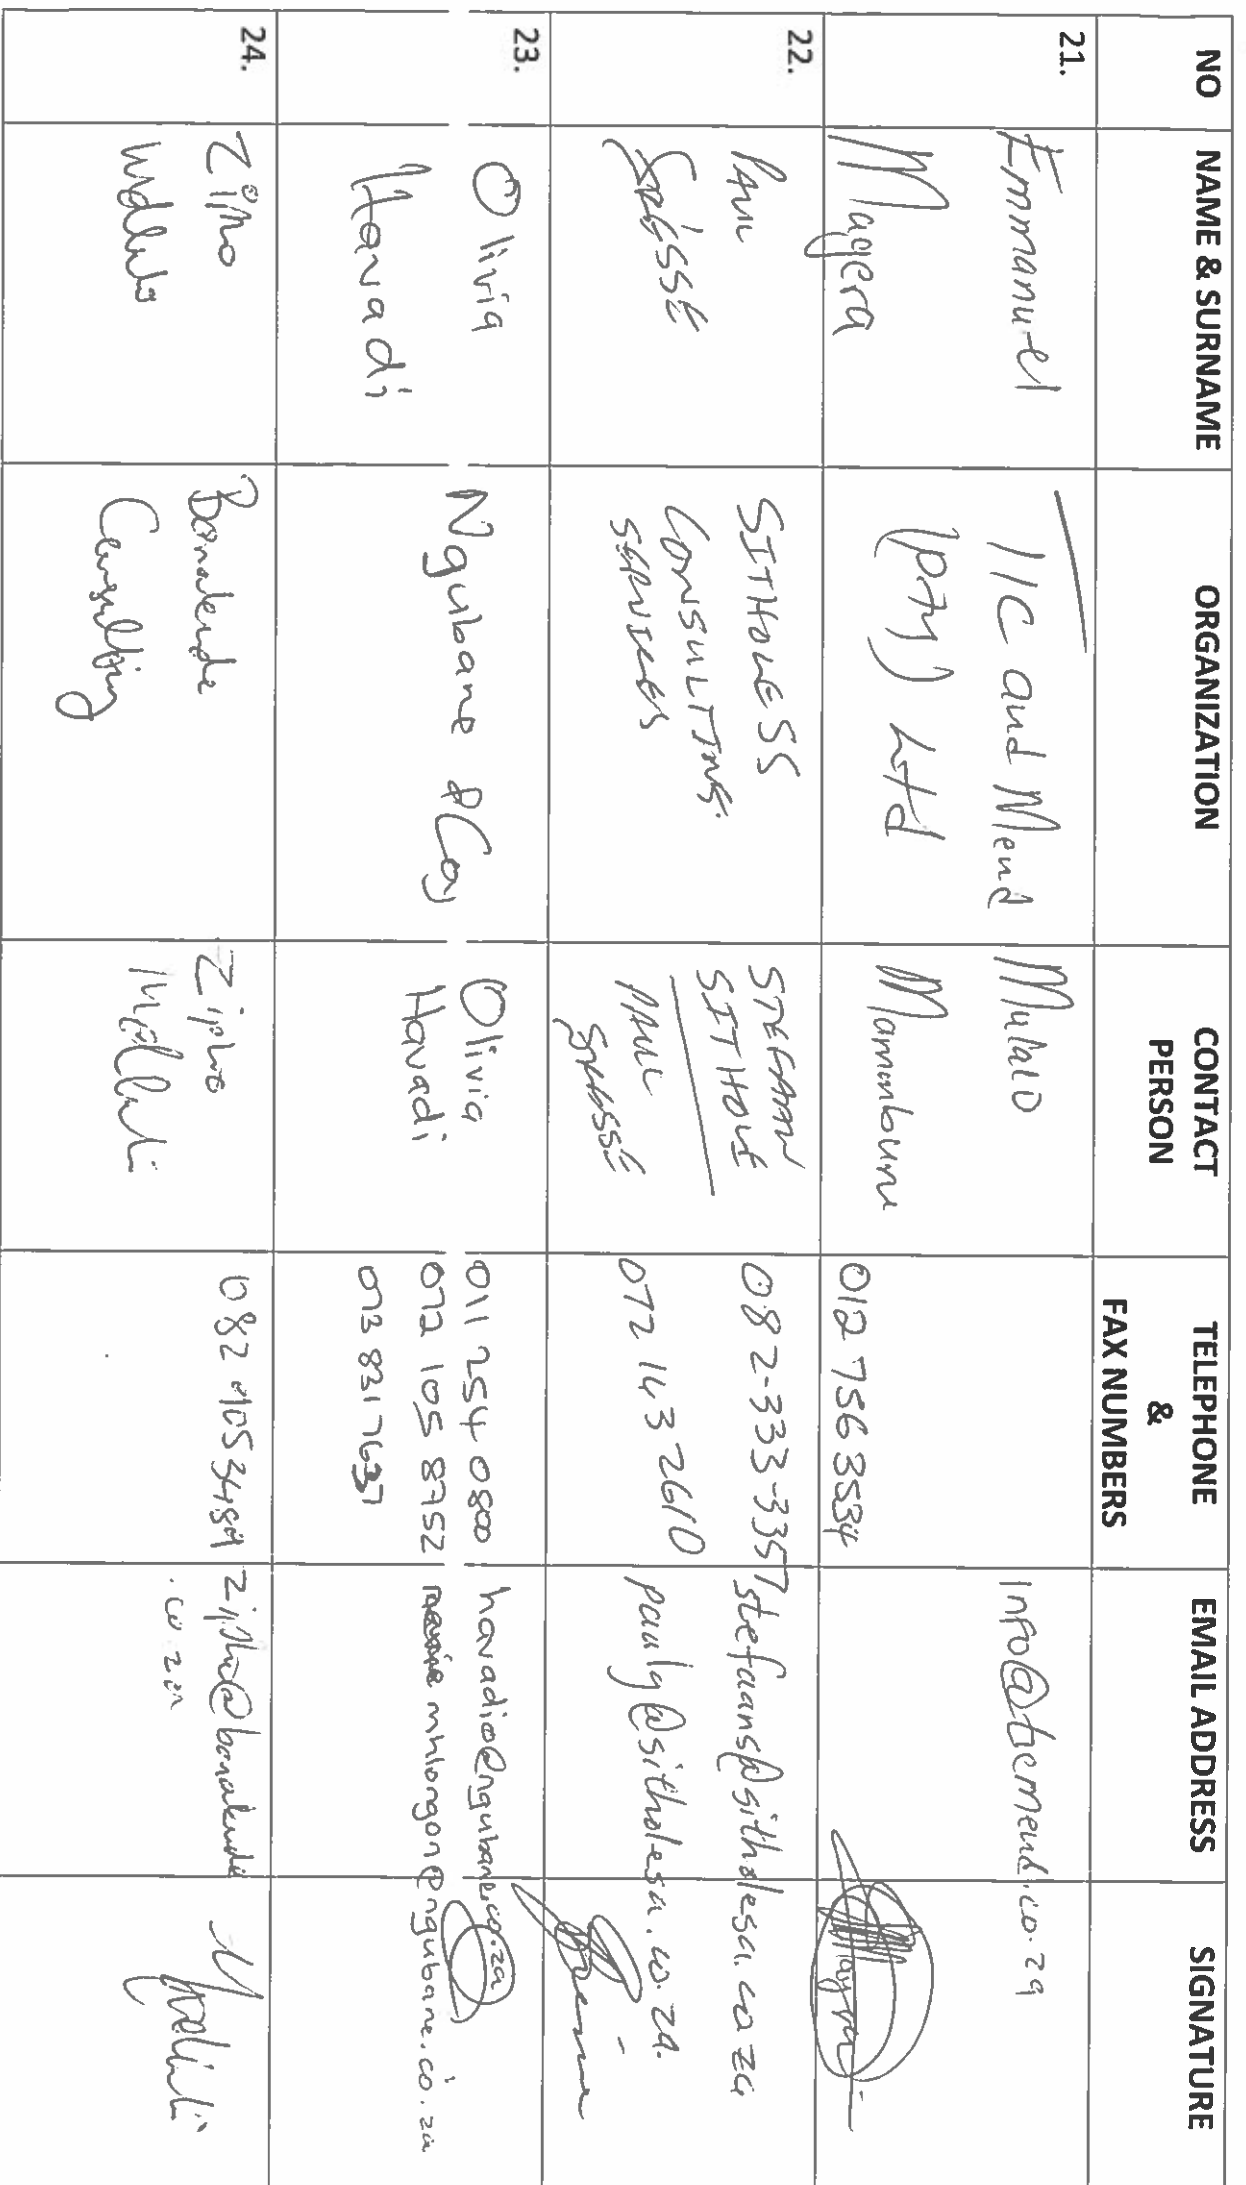 NO
NAME & SURNAME
ORGANIZATION
CONTACT
PERSON
TELEPHONE
&
FAX NUMBERS
EMAIL ADDRESS
SIGNATURE
21.
Emmanuel
Magera
TIC and Mend
(pty) Ltd
Mulalo
012 756 3534
info@ticmend.co.za
22.
PAUL
SITHOLE SS
CONSULTING
SERVICES
STEFAAN
SITHOLE
PAUL
082-333-3357
072 143 2610
stefaans@sitholesa.co za
pauly@sitholesa.co.za.
23.
Olivia
Havadi
Ngubane & Coy
Olivia
Havadi
011 254 0800
072 105 8752
073 831 7637
havadio@ngubane.co.za
mhlongon@ngubane.co.za
24.
Bonakude
Consulting
Zipho
082 905 3484
zipho@bonakude
.co.za